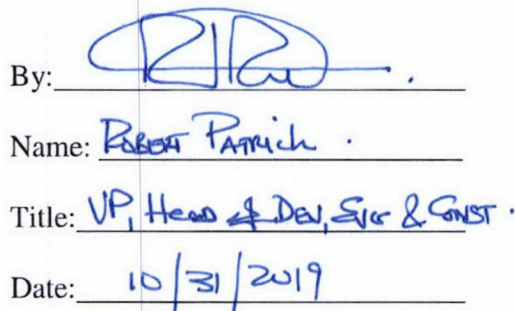 By:
Name: ROBERT PATRICK.
Title: VP, HEAD of DEV, & CONST.
Date: 10/31/2019